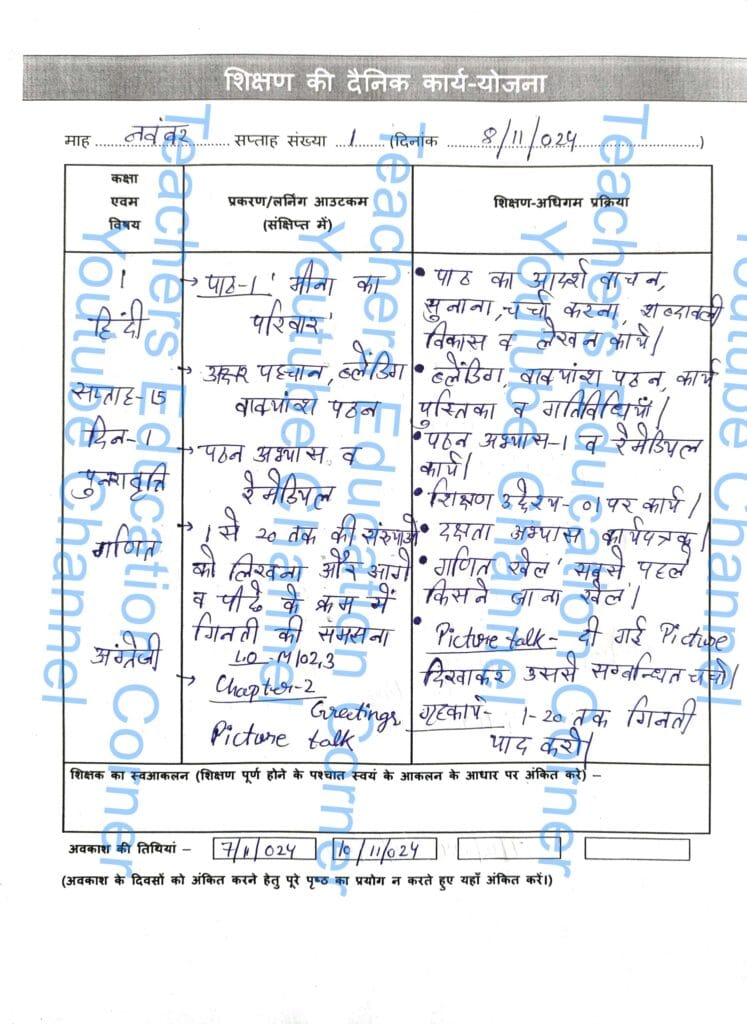 शिक्षण की दैनिक कार्य-योजना
माह नवंबर सप्ताह संख्या 1 (दिनांक 8/11/024)
कक्षा
एवम
विषय
प्रकरण/लर्निंग आउटकम
(संक्षिप्त में)
शिक्षण-अधिगम प्रक्रिया
1
हिंदी
सप्ताह-15
दिन-1
पुनरावृत्ति
गणित
अंग्रेजी
→ पाठ-1 'मीना का
परिवार'
→ अक्षर पहचान, ब्लेंडिंग
वाक्यांश पठन
→ पठन अभ्यास व
रेमेडियल
→ 1 से 20 तक की संख्याओं
को लिखना और आगे
व पीछे के क्रम में
गिनती की समझना
LO-M102,3
→ Chapter-2
Greetings
Picture talk
• पाठ का आदर्श वाचन,
सुनाना, चर्चा करना, शब्दावली
विकास व लेखन कार्य।
• ब्लेंडिंग, वाक्यांश पठन, कार्य
पुस्तिका व गतिविधियाँ।
• पठन अभ्यास-1 व रेमेडियल
कार्य।
• शिक्षण उद्देश्य-01 पर कार्य।
• दक्षता अभ्यास कार्यपत्रक।
• गणित खेल 'सबसे पहले
किसने जाना खेल'।
• Picture talk- दी गई Picture
दिखाकर उससे सम्बन्धित चर्चा।
गृहकार्य- 1-20 तक गिनती
याद करो।
शिक्षक का स्वआकलन (शिक्षण पूर्ण होने के पश्चात स्वयं के आकलन के आधार पर अंकित करें) –
अवकाश की तिथियां – 7/11/024 10/11/024
(अवकाश के दिवसों को अंकित करने हेतु पूरे पृष्ठ का प्रयोग न करते हुए यहाँ अंकित करें।)
Teachers Education Corner
Youtube Channel
Teachers Education Corner
Youtube Channel
Teachers Education Corner
Youtube Channel